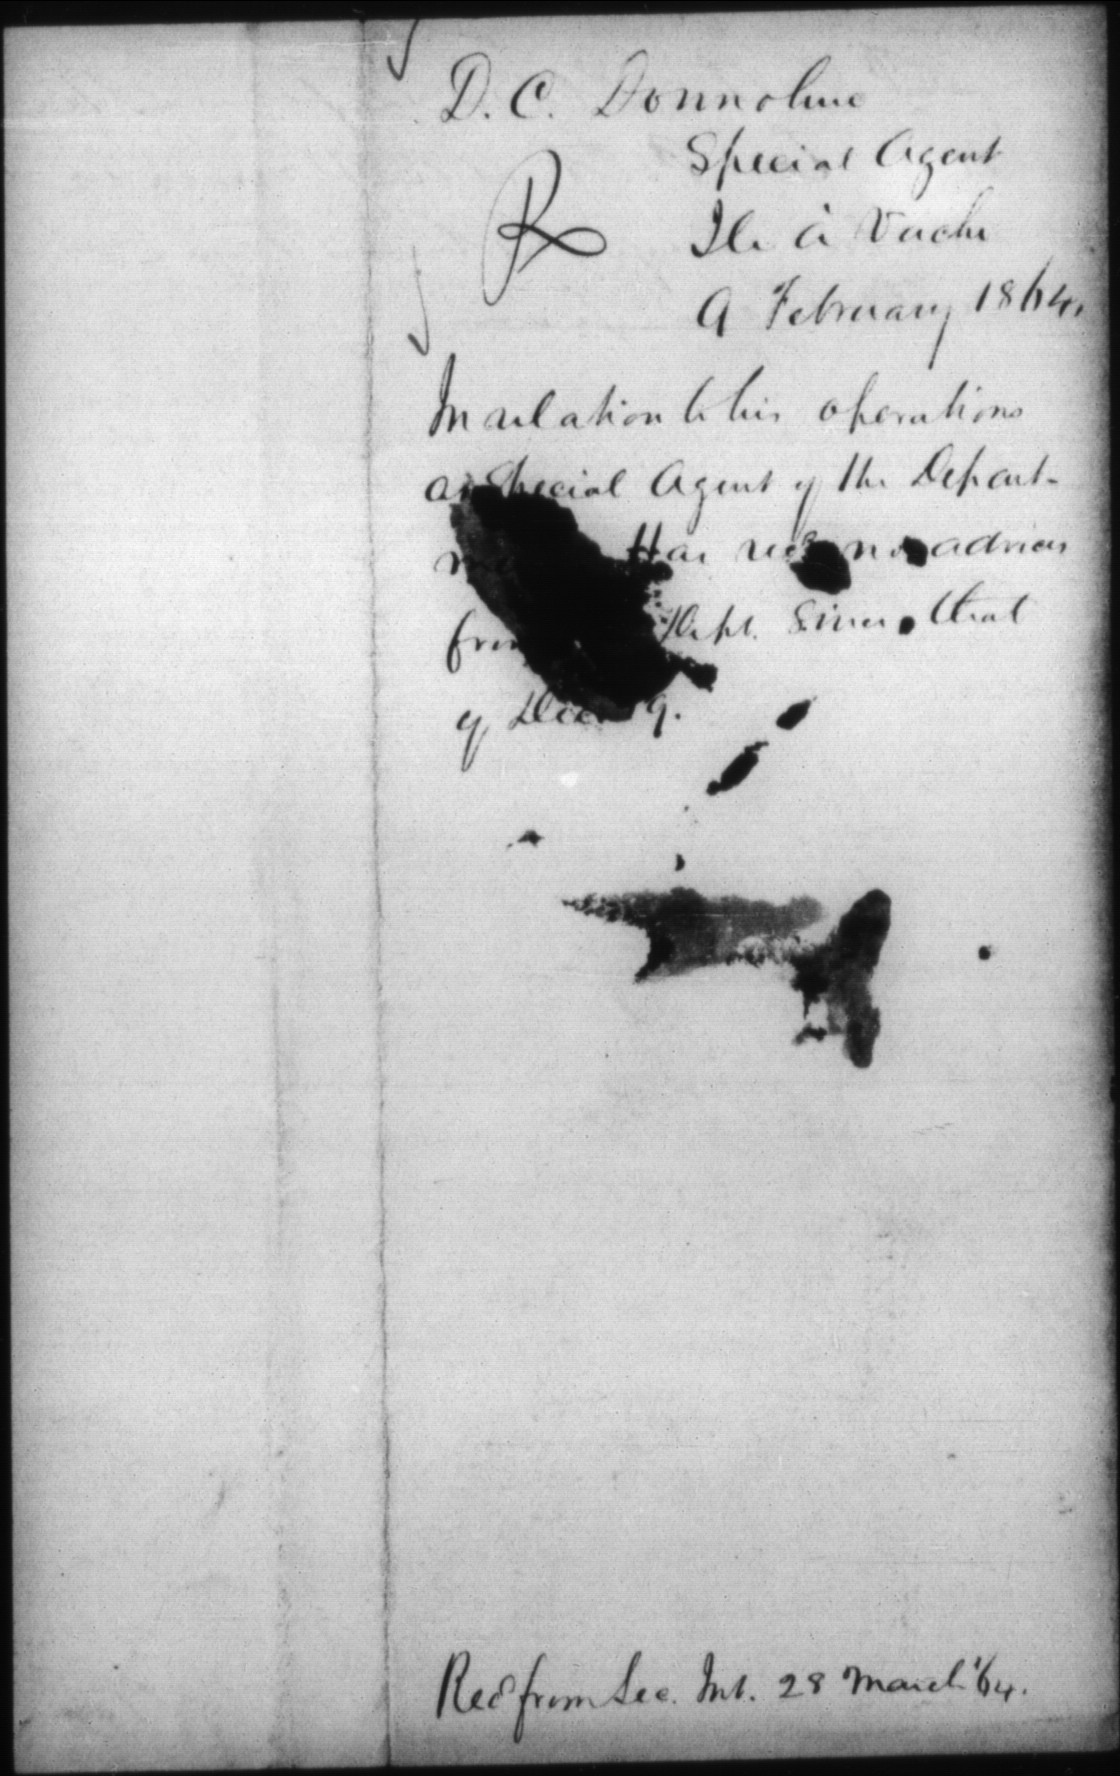 D. C. Donnohue
Special Agent
Ile à Vache
9 February 1864.
In relation to his operations
as Special Agent of the Depart-
Has no advices
from Dept. Since that
of Dec. 9.
Recd from Sec. Int. 28 March '64.